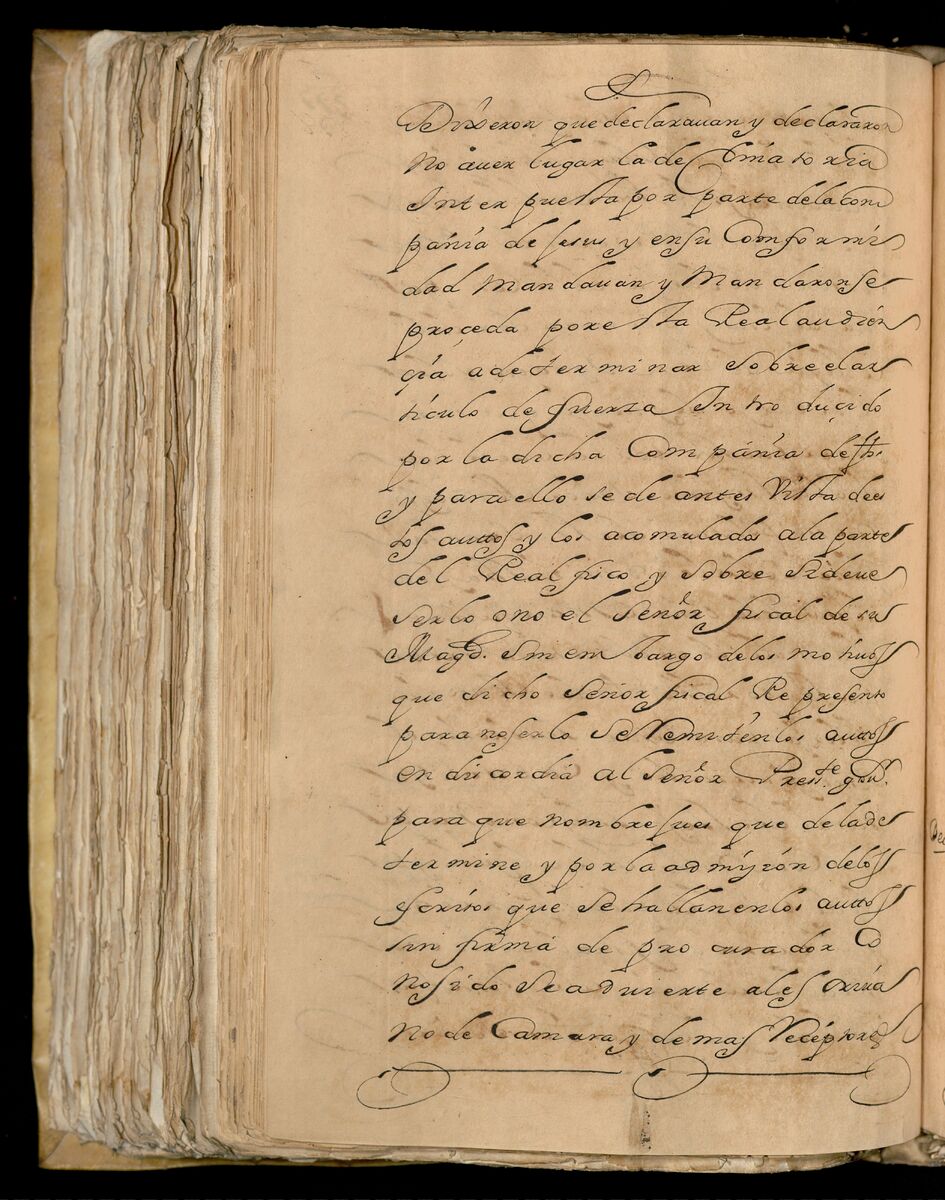 Dixeron que declarauan y declararon
no auer lugar la declinatoria
Interpuesta por parte dela com
pañia de Jesus y en su Comformi
dad Mandauan y Mandaron se
proçeda por esta Real audien
çia adeterminar sobre el ar
ticulo de fuerza Introduçido
por la dicha Compañia de Jhs
y para ello se de antes Vista dees
tos auttos y los acomulados ala parte
del Real fisco y sobre si deue
serlo ono el señor fiscal de su
Magd. sin embargo delos motiuos
que dicho señor fiscal Represento
para no serlo se Remiten los auttos
en discordia al señor Presste. gour.
para que nombre jues que dela de
termine y por la admiçion delos
escritos que se hallan enlos auttos
sin firma de procurador Co
nosido se aduierte al escriua
no de Camara y demas Receptores